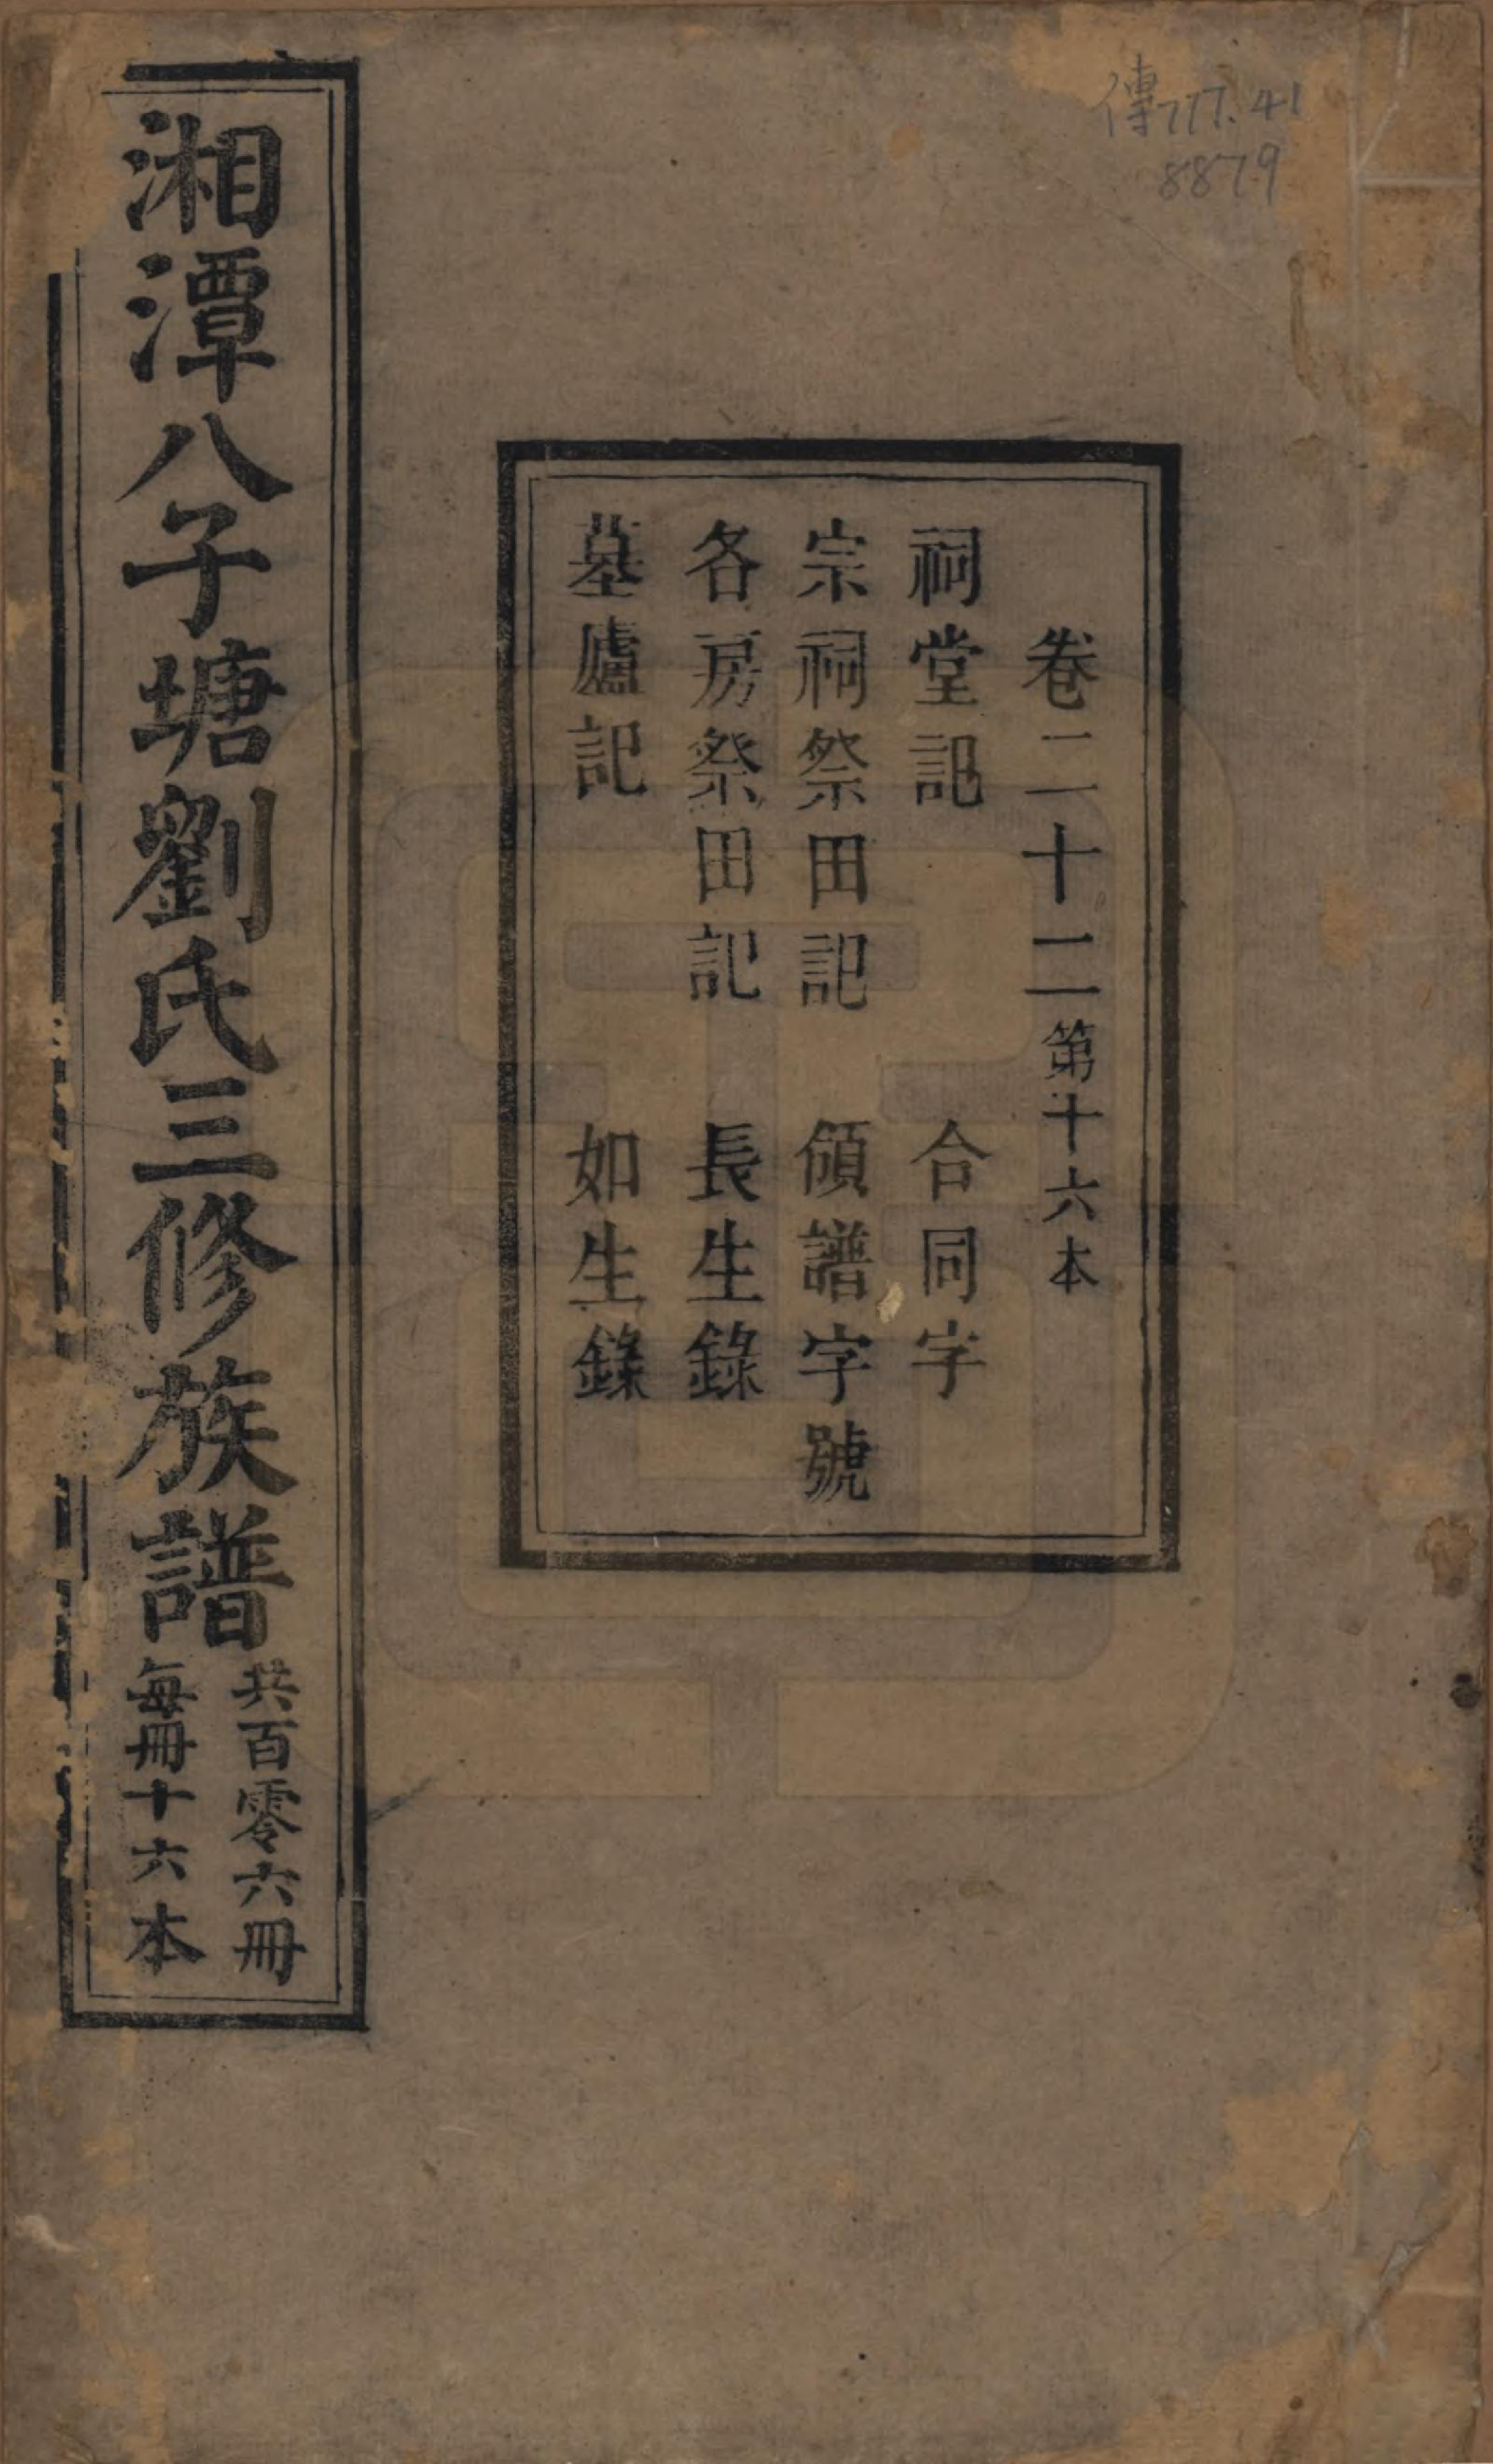 傳777.41
8879
卷二十二第十六本
祠堂記 合同字
宗祠祭田記 頒譜字號
各房祭田記 長生錄
墓廬記 如生錄
湘潭八子塘劉氏三修族譜
共百零六冊
每冊十六本